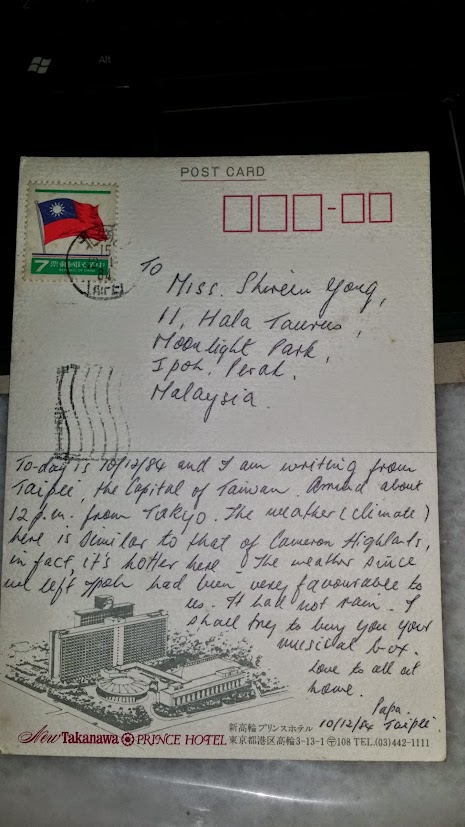 Alt
POST CARD
7
中華民國郵票
REPUBLIC OF CHINA
To
Miss. Shirein Yong,
11, Hala Taurus,
Moonlight Park,
Ipoh, Perak,
Malaysia.
To-day is 10/12/84 and I am writing from
Taipei, the Capital of Taiwan. Arrived about
12 p.m. from Tokyo. The weather (climate)
here is similar to that of Cameron Highlands,
in fact, it's hotter here. The weather since
we left Ipoh had been very favourable to
us. It had not rain. I
shall try to buy you your
musical box.
Love to all at
home.
Papa.
10/12/84 Taipei.
New Takanawa PRINCE HOTEL
新高輪プリンスホテル
東京都港区高輪3-13-1 〒108 TEL.(03)442-1111